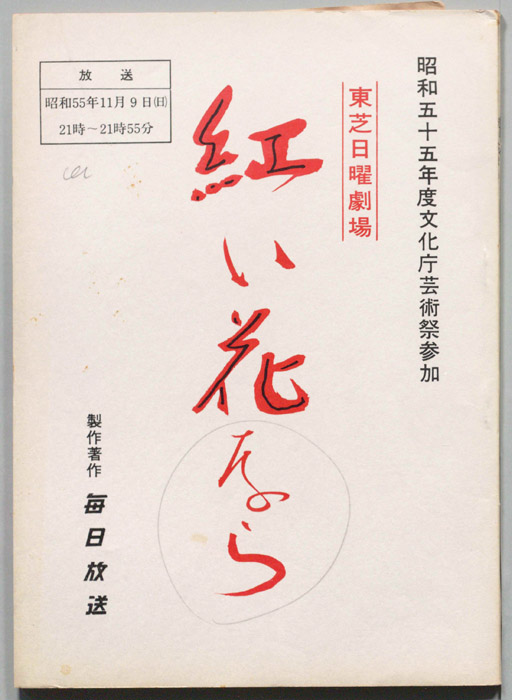 昭和五十五年度文化庁芸術祭参加
東芝日曜劇場
紅い花なら
放送
昭和55年11月9日(日)
21時～21時55分
製作著作 毎日放送